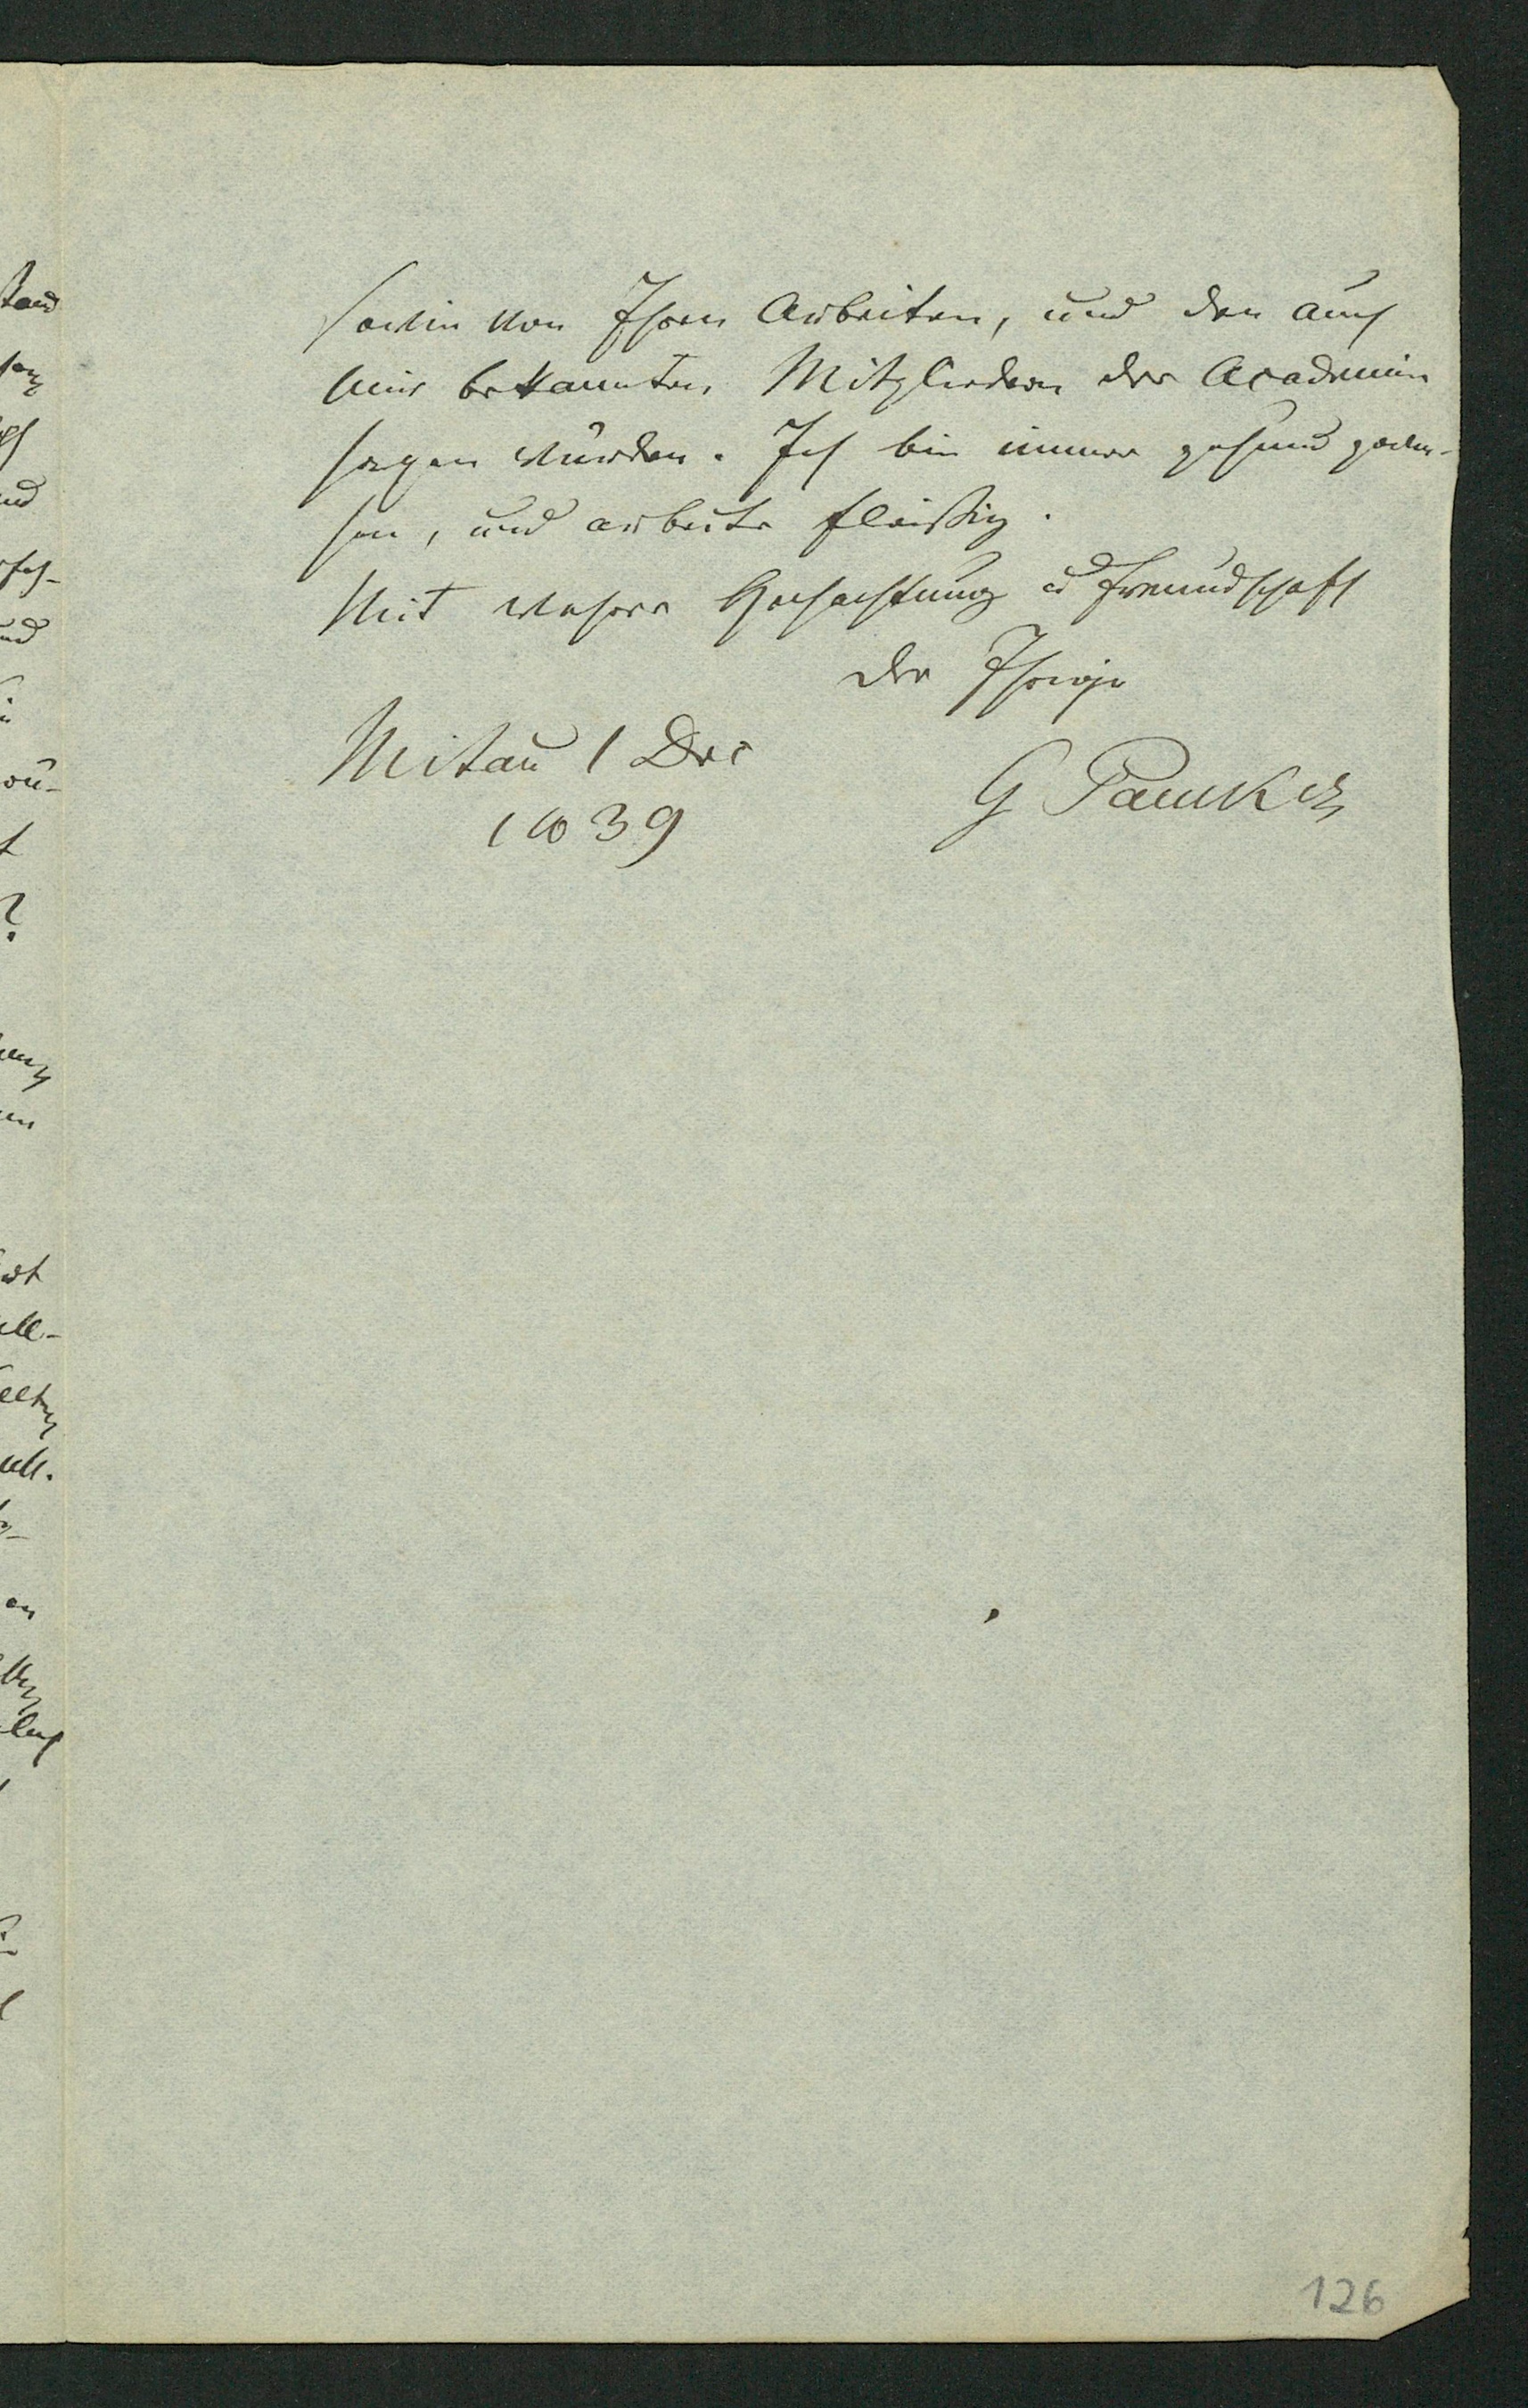 sowie von Ihren Arbeiten, und den auch
mir bekannten Mitgliedern der Academie
sagen würden. Ich bin immer gesund gewe-
sen, und arbeite fleißig.
Mit wahrer Hochachtung u Freundschaft
der Ihrige
Mitau 1 Dec
1839
G Paucker
126